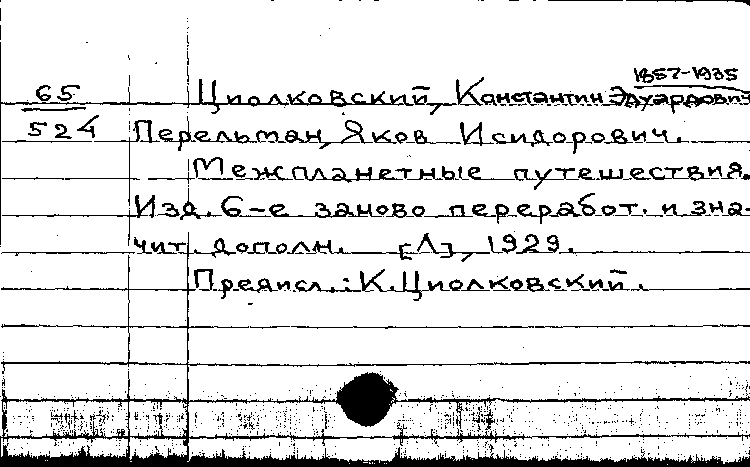 1857-1935
65 Циолковский, Канстантин Эдуардович
524 Перельман, Яков Исидорович.
Межпланетные путешествия.
Изд. 6-е заново переработ. и зна-
чит. дополн. [Л], 1929.
Предисл.: К. Циолковский.